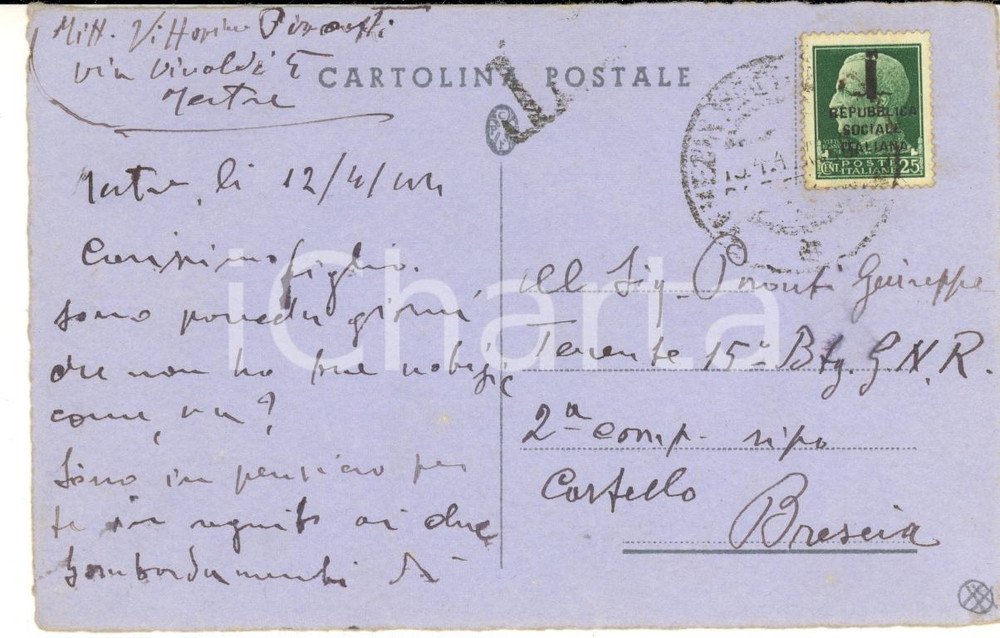 Mitt. Vittorino
Via Vivaldi 5
Mestre
CARTOLINA POSTALE
T
REPUBBLICA
SOCIALE
ITALIANA
CENT POSTE ITALIANE 25
Mestre, li 12/4/44
Carissimo figlio.
Sono parecchi giorni
che non ho tue notizie
come va?
Sono in pensiero per
te in seguito ai due
bombardamenti di
Al Sig. Giuseppe
Tenente 15º Btg. G.N.R.
2ª comp.
Castello
Brescia
iCharta